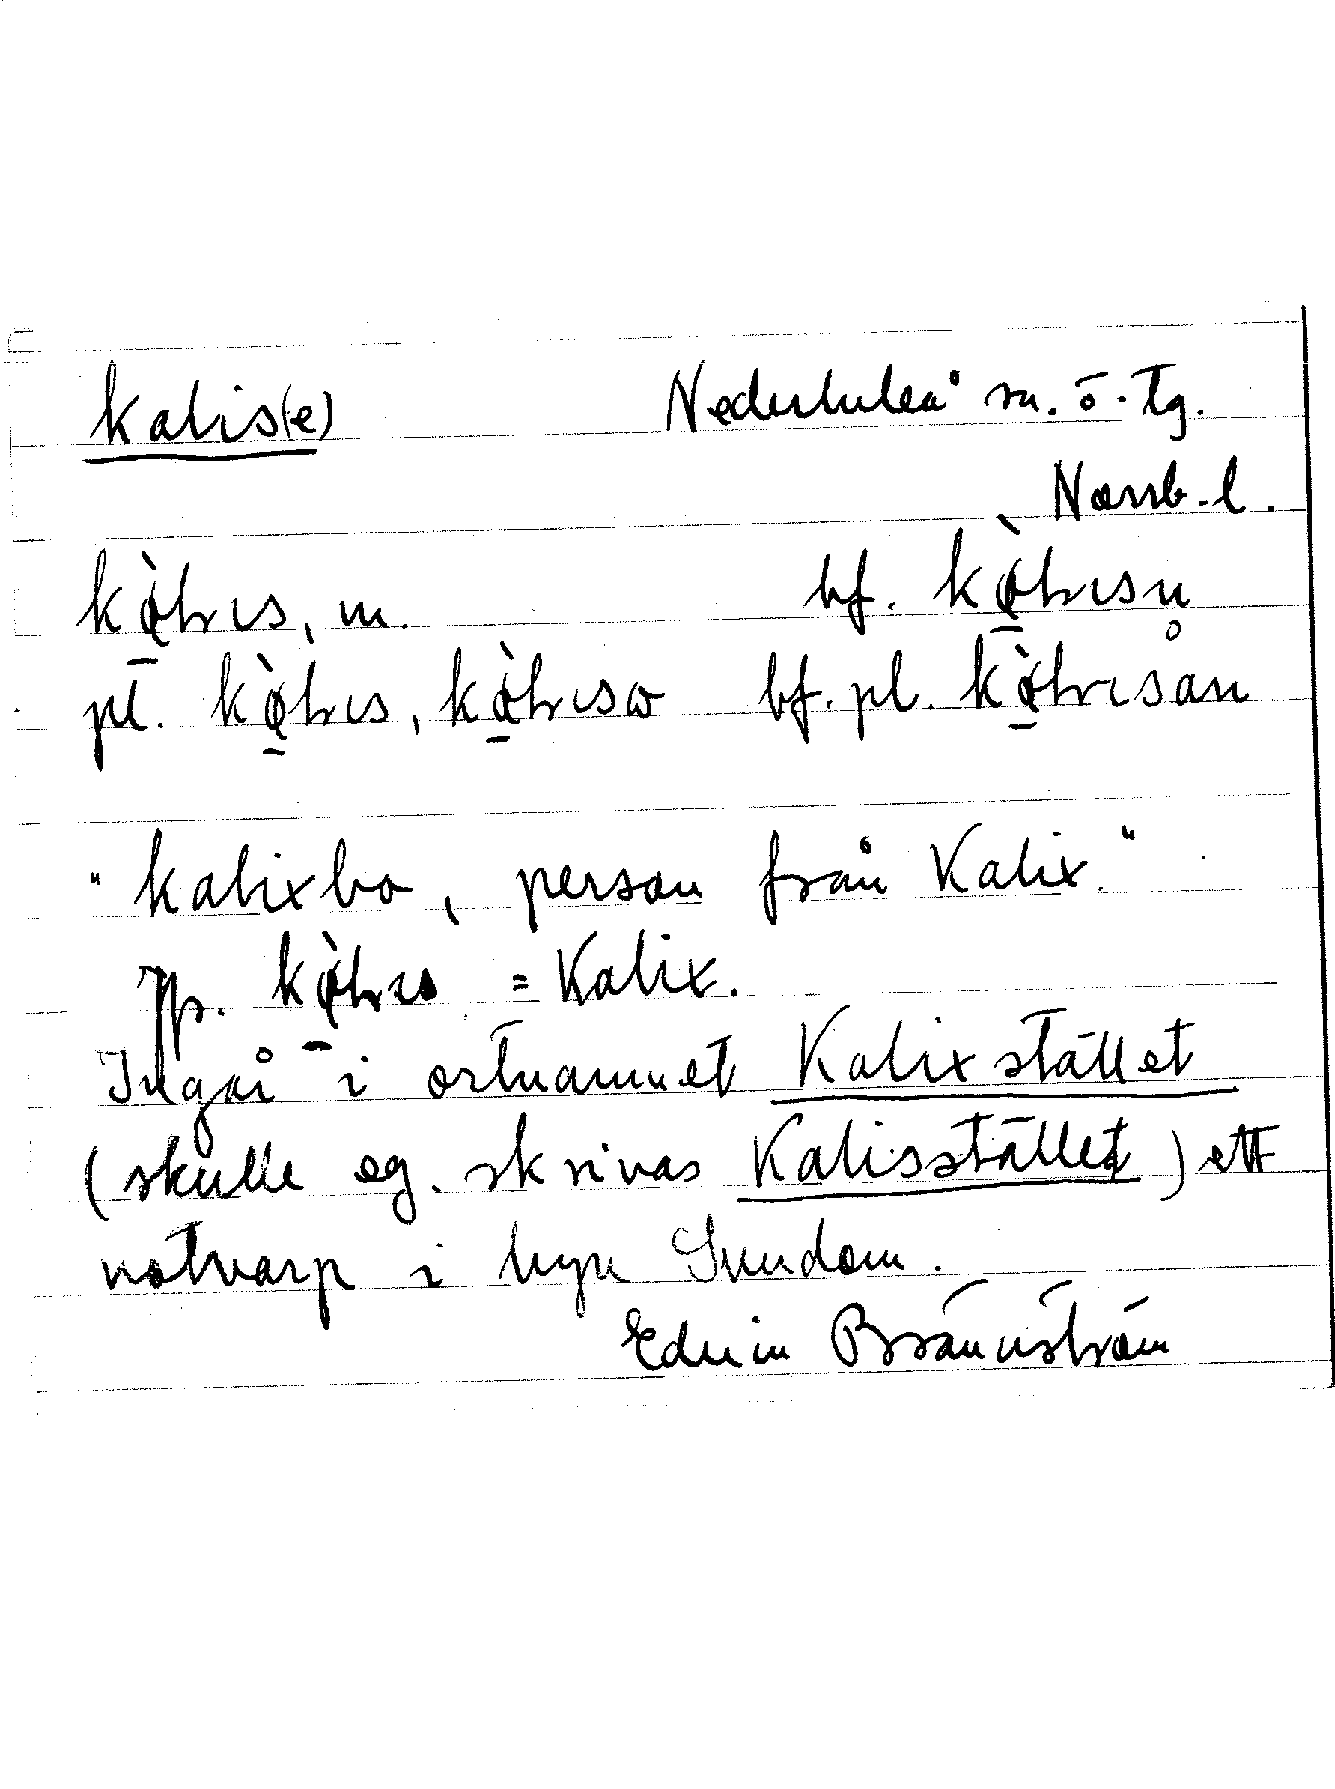 kalis(e) Nederluleå sn. ö. tg.
Norrb. l.
kà̱lıs, m. bf. kà̱lısn
pl. kà̱lıs, kà̱lısω bf. pl. kà̱lısån
"kalixbo, person från Kalix."
Jfr. kà̱lıs = Kalix.
Ingår i ortnamnet Kalixstället
(skulle eg. skrivas Kalisstället) ett
notvarp i byn Sundom.
Edvin Brännström